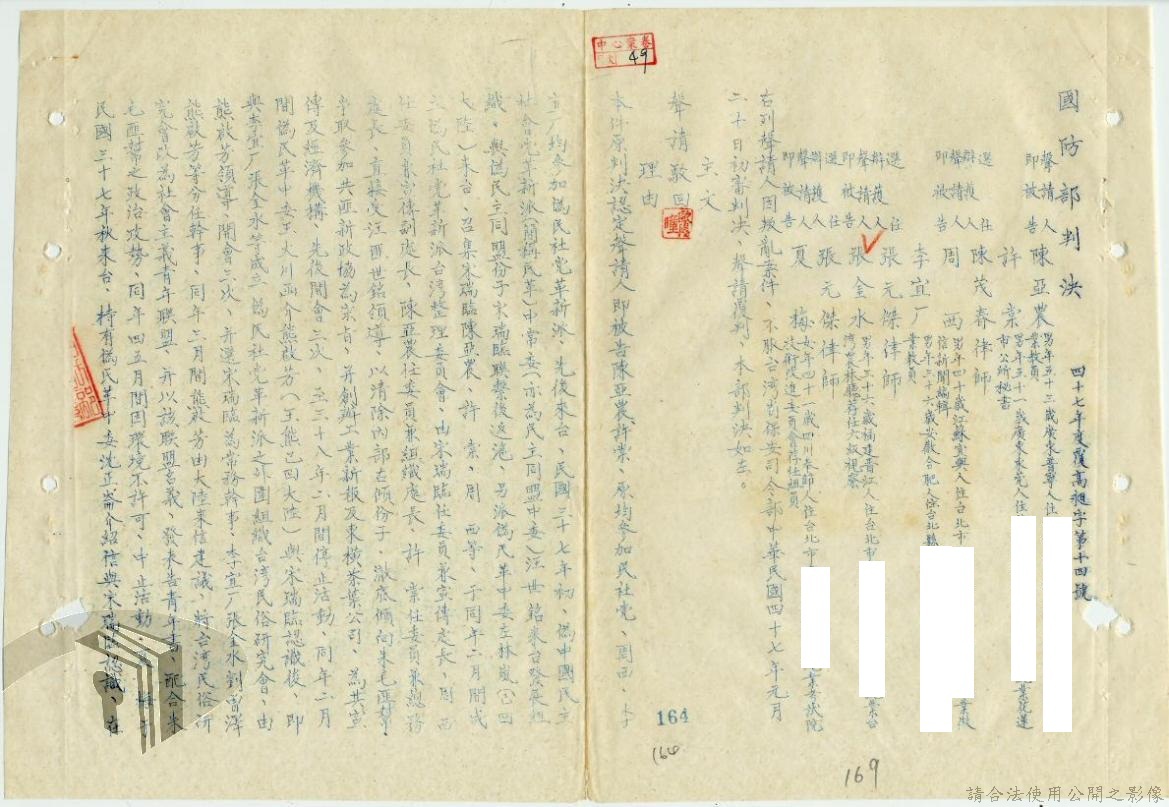 國防部判決
四十七年度覆高昶字第十四號
聲請人
即被告 陳亞農 男年五十三歲廣東普寧人住
業教員
許棠 男年五十一歲廣東東莞人住 業花蓮
市公所秘書
選任
辯護人 陳茂春律師
聲請人
即被告 周西 男年四十歲江蘇宜興人住台北市 業徵
信新聞編輯
李宜厂 男年三十六歲安徽合肥人住台北縣
業教員
選任
辯護人 張元傑律師
聲請人
即被告 張金水 男年三十六歲福建晉江人住台北市 業台
灣
選任
辯護人 張元傑律師
聲請人
即被告 夏梅 女年四十一歲四川奉節人住台北市 業考試院
技術改進委員會荐任組員
右列聲請人因叛亂案件、不服台灣前保安司令部中華民國四十七年元月
二十日初審判決、聲請覆判、本部判決如左。
主文
聲請駁回
理由
本件原判決認定聲請人即被告陳亞農許棠、原均參加民社黨、周西、李
宜厂均參加偽民社黨革新派、先後來台、民國三十七年初、偽中國民主
社會黨革新派(簡稱民革)中常委(亦為民主同盟中委)汪世銘來台發展組
織、與偽民主同盟份子宋瑞臨聯繫後返滬、另派偽民革中委左林嵗(已回
大陸)來台、召集宋瑞臨陳亞農、許棠、周西等、于同年二月間成
立偽民社黨革新派台灣整理委員會、由宋瑞臨任委員兼宣傳處長、周西
任委員兼宣傳副處長、陳亞農任委員兼組織處長、許棠任委員兼總務
處長、直接受汪匪世銘領導、以清除內部右傾份子、澈底傾向朱毛匪幫
爭取參加共匪新政協為宗旨、并創辦工業新報及東橫茶葉公司、為其宣
傳及經濟機構、先後開會三次、至三十八年二月間停止活動、同年二月
間偽民革中委王大川函介熊啟芳(王熊已回大陸)與宋瑞臨認識後、即
與李宜厂張金水等成立偽民社黨革新派之外圍組織台灣民俗研究會、由
熊啟芳領導、開會三次、并選宋瑞臨為常務幹事、李宜厂張金水
熊啟芳等分任幹事、同年三月間熊啟芳由大陸來信建議、將台灣民俗研
究會改為社會主義青年聯盟、并以該聯盟名義、發表告青年書、配合朱
毛匪幫之政治攻勢、同年四五月間因環境不許可、中止活動、夏梅于
民國三十七年秋來台、持有偽民革中委沈正崙介紹信與宋瑞臨認識、在
49
164
164
169
請合法使用公開之影像